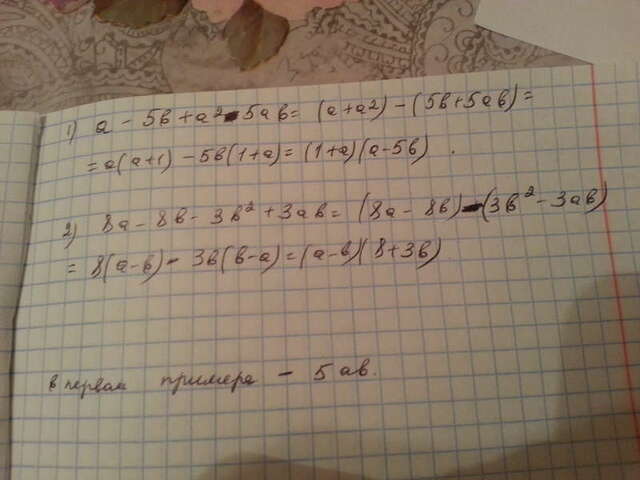 1) a - 5в + a2 - 5aв = (a+a2) - (5в+5aв) =
= a(a+1) - 5в(1+a) = (1+a)(a-5в).
2) 8a - 8в - 3в² + 3aв = (8a - 8в) - (3в² - 3aв)
= 8(a-в) - 3в(в-a) = (a-в)(8+3в)
в первом примере - 5aв.